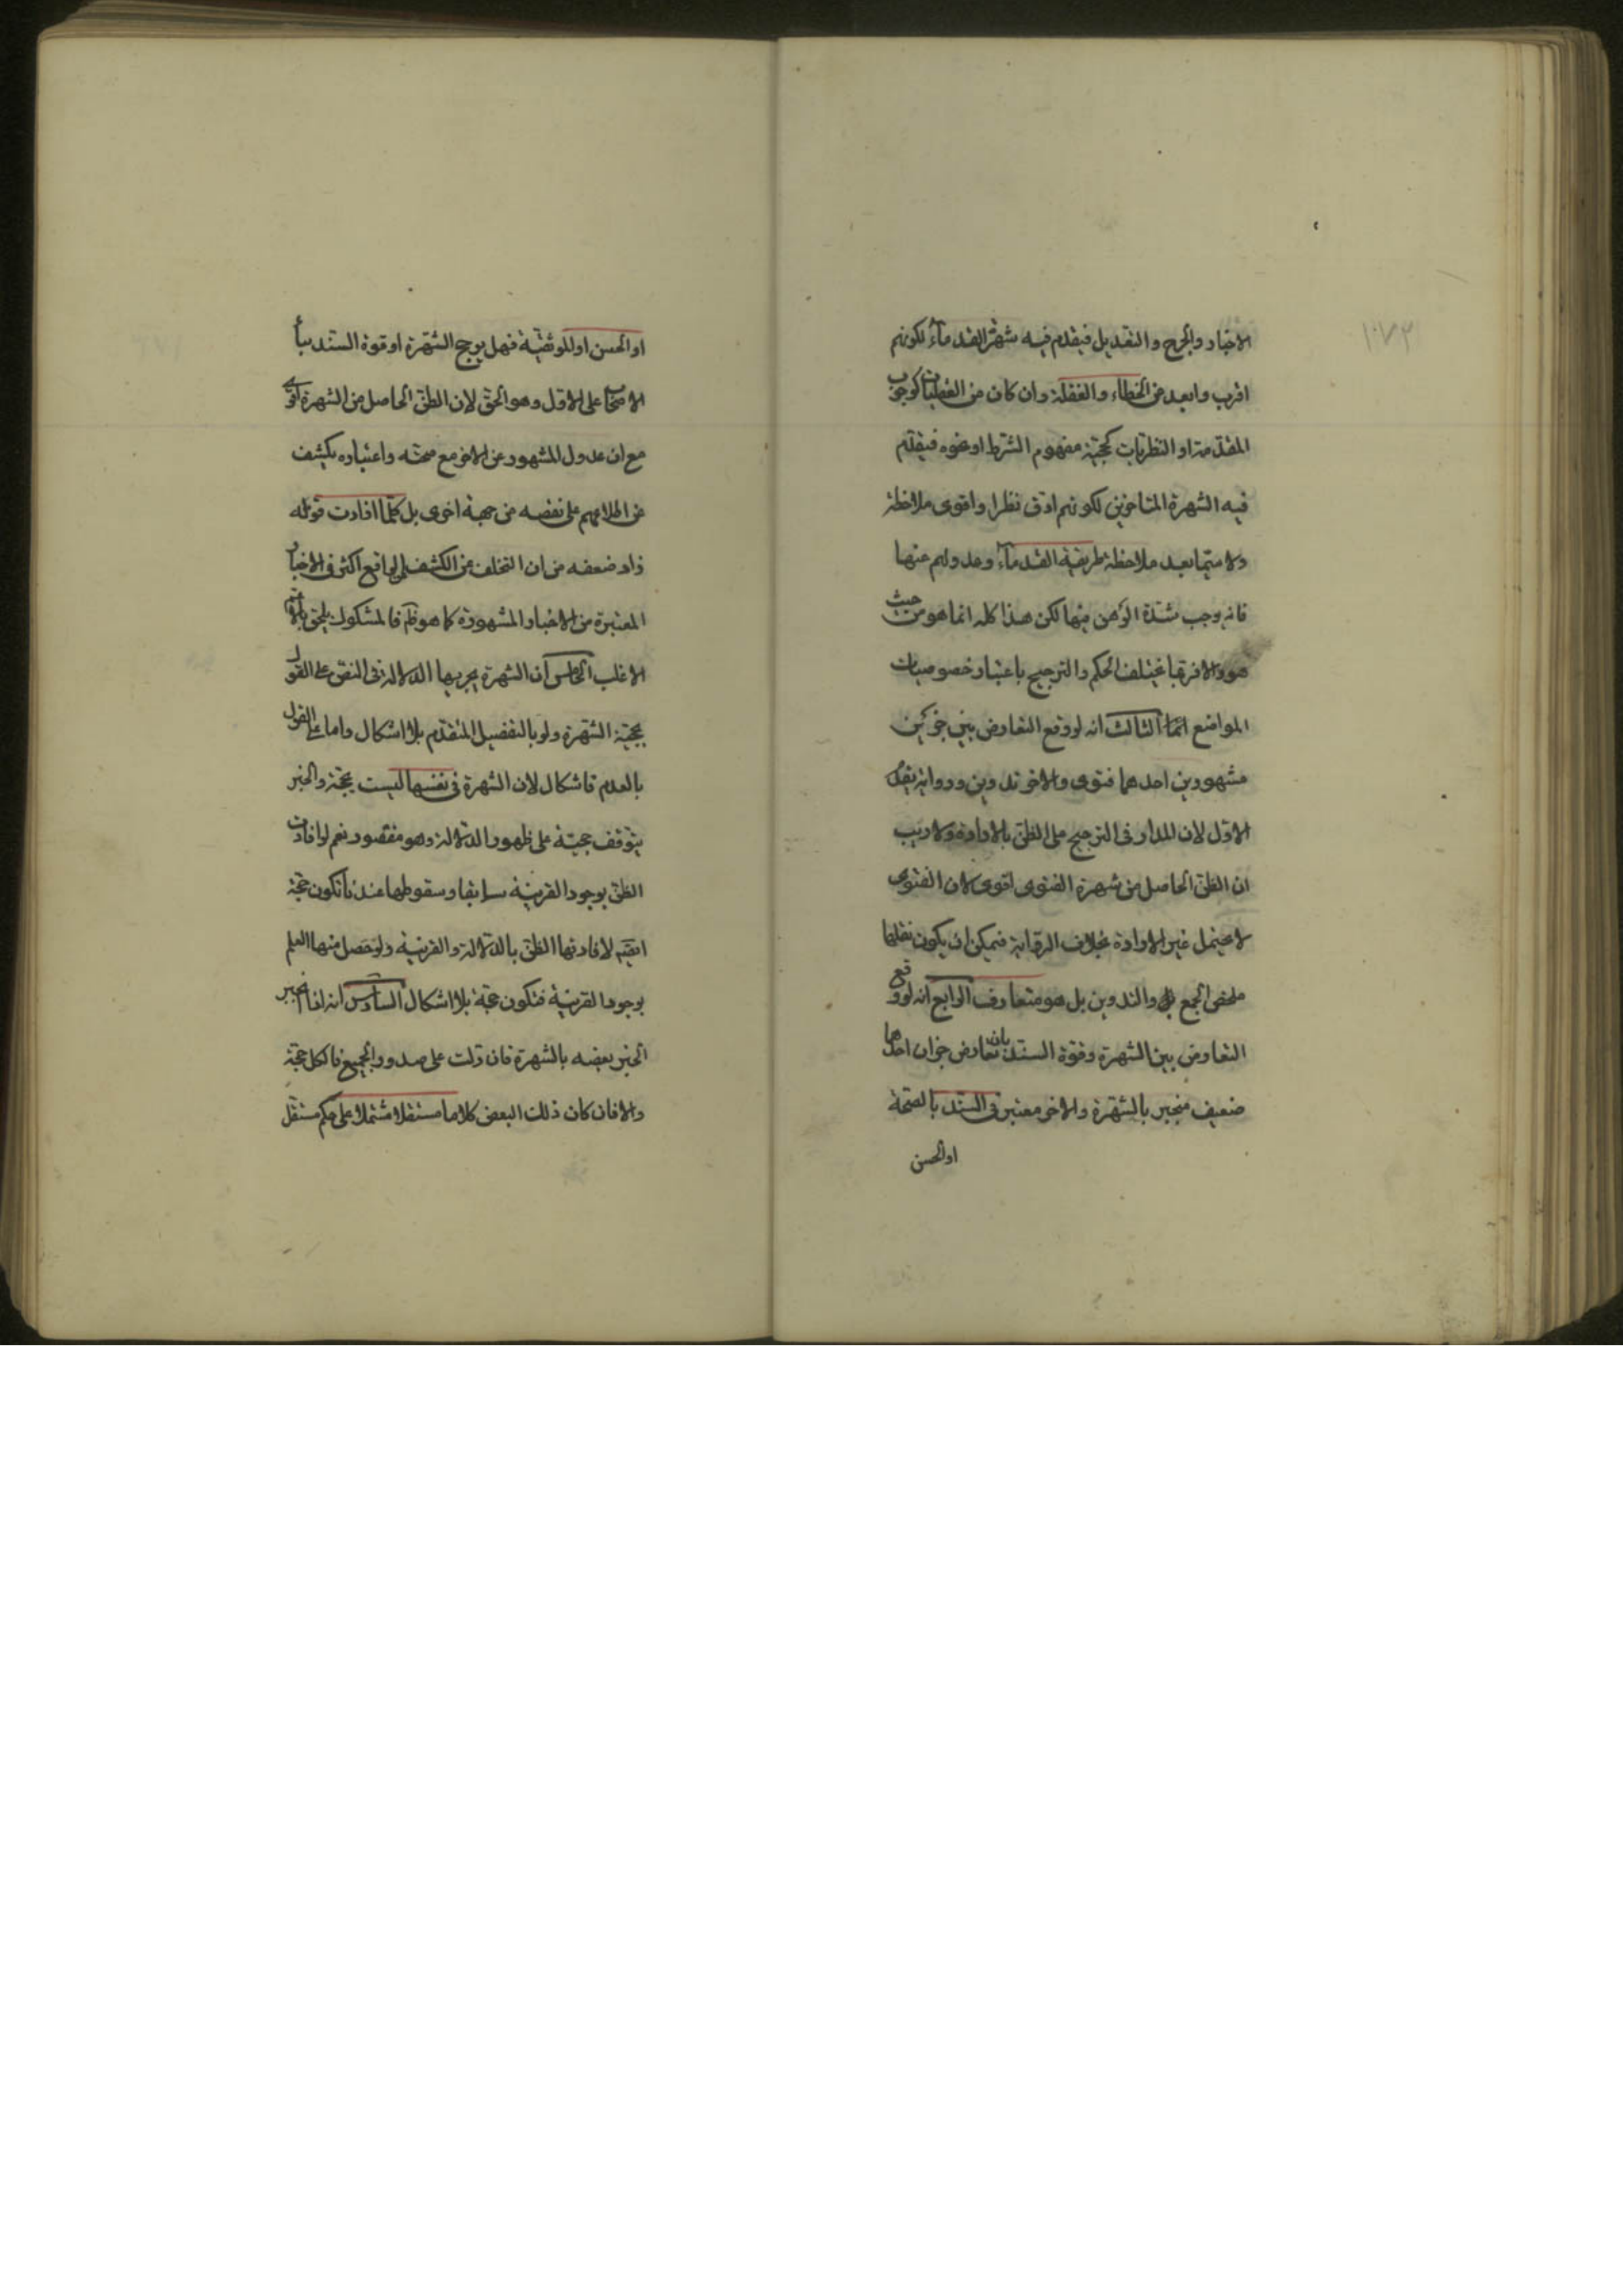 ١٠٧٢
الاخبار والجرح والتعديل فيقدم فيه شهرة القدماء لكونهم
اقرب وابعد عن الخطاء والغفلة وان كان من العقليات كوجوب
المقدمة او النظريات كحجية مفهوم الشرط او نحوه فيقدم
فيه الشهرة المتاخرين لكونهم ادق نظرا واقوى ملاحظة
ولا سيما بعد ملاحظة طريقة القدماء وعدولهم عنها
فانه يوجب شدة الوهن فيها لكن هذا كله انما هو من حيث
هو والا فربما يختلف الحكم والترجيح باعتبار خصوصيات
المواضع الثالث انه لو وقع التعارض بين خبرين
مشهورين احدهما فتوى والاخر تدوين ورواية يقدم
الاول لان المدار فى الترجيح على الظن بالارادة ولا ريب
ان الظن الحاصل من شهرة الفتوى اقوى لان الفتوى
لا يحتمل غير الارادة بخلاف الرواية فيمكن ان يكون نقلها
محض الجمع والتدوين بل هو متعارف الرابع انه لو وقع
التعارض بين الشهرة وقوة السند بان تعارض خبران احدهما
ضعيف منجبر بالشهرة والاخر معتبر فى السند بالصحة
او الحسن
او الحسن او الموثقية فهل يرجح الشهرة او قوة السند
الاصحاب على الاول وهو الحق لان الظن الحاصل من الشهرة اقوى
مع ان عدول المشهور عن الاخر مع صحته واعتباره يكشف
عن اطلاعهم على نقصه من جهة اخرى بل كلما افادت قوته
زاد ضعفه من ان التخلف عن الكشف الواقع اكثر فى الاخبار
المعتبرة من الاخبار المشهورة كما هو فالمشكوك يلحق بالاعم
الاغلب الخامس ان الشهرة يجبر بها الدلالة فى النص على القول
بحجية الشهرة ولو بالتفصيل المتقدم بلا اشكال واما على القول
بالعدم فاشكال لان الشهرة فى نفسها ليست بحجة والخبر
يتوقف حجيته على ظهور الدلالة وهو مفقود نعم لو افادت
الظن بوجود القرينة سابقا وسقوطها عندنا تكون حجة
ايضا لافادتها الظن بالدلالة والقرينة ولو حصل منها العلم
بوجود القرينة فتكون حجة بلا اشكال السادس انه اذا انجبر
الخبر بعضه بالشهرة فان دلت على صدور الجميع فالكل حجة
والا فان كان ذلك البعض كلاما مستقلا مشتملا على حكم مستقل